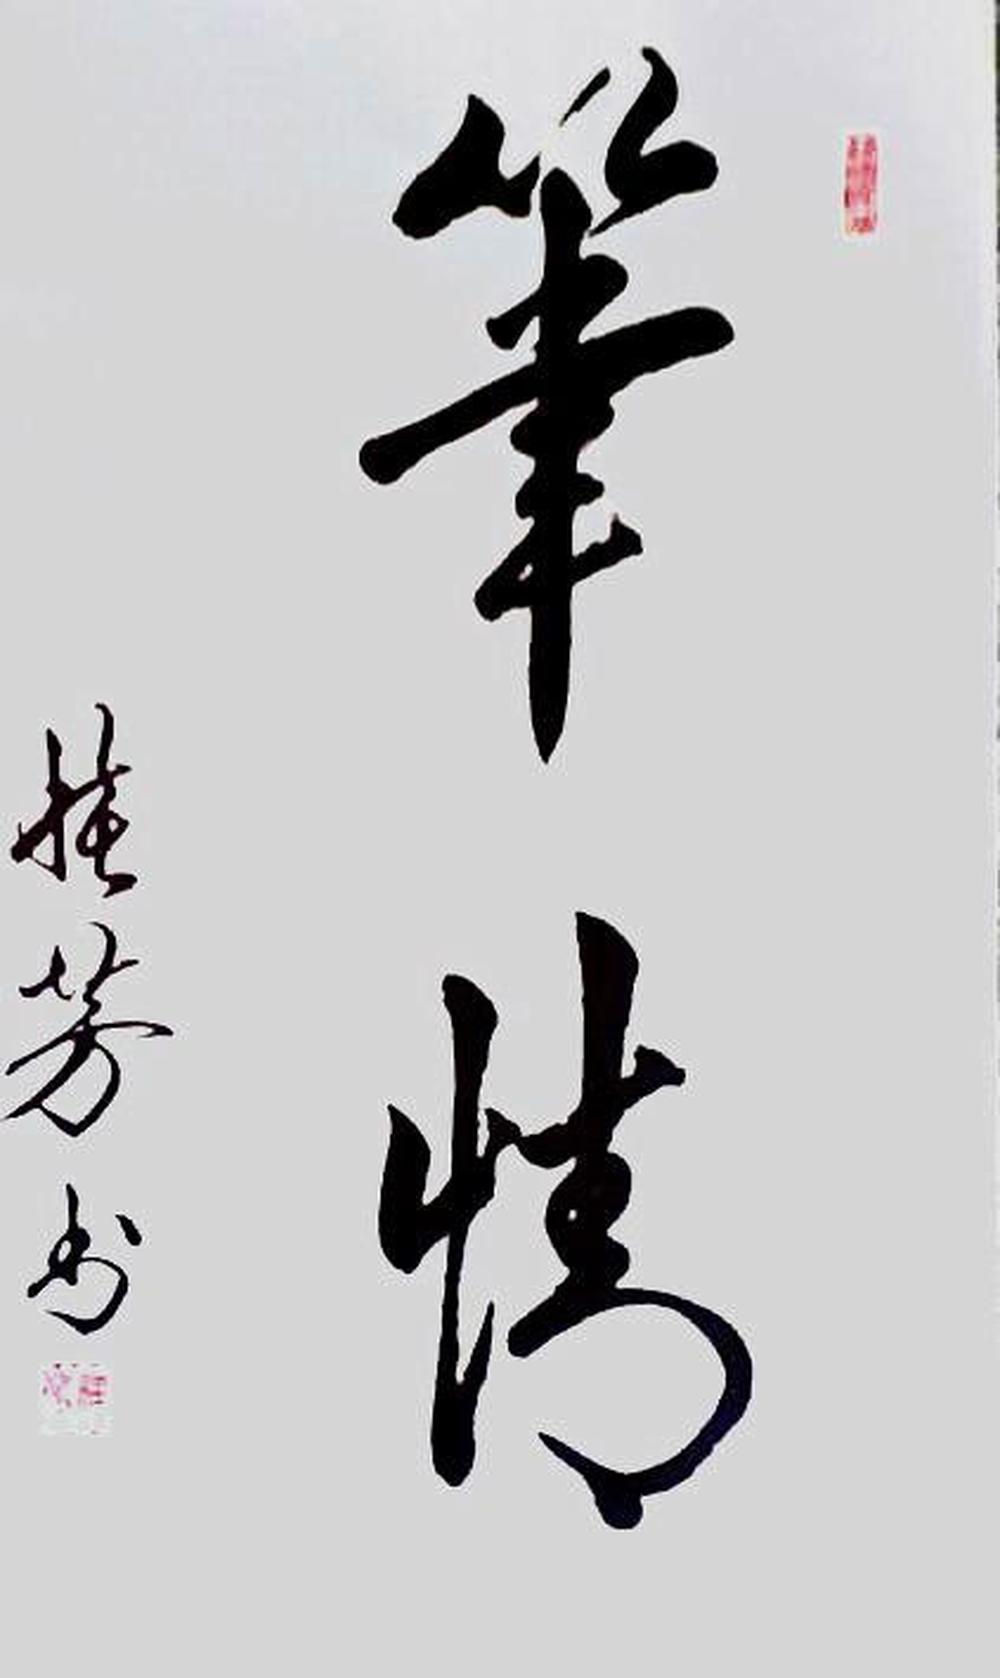 筆情
桂芳书